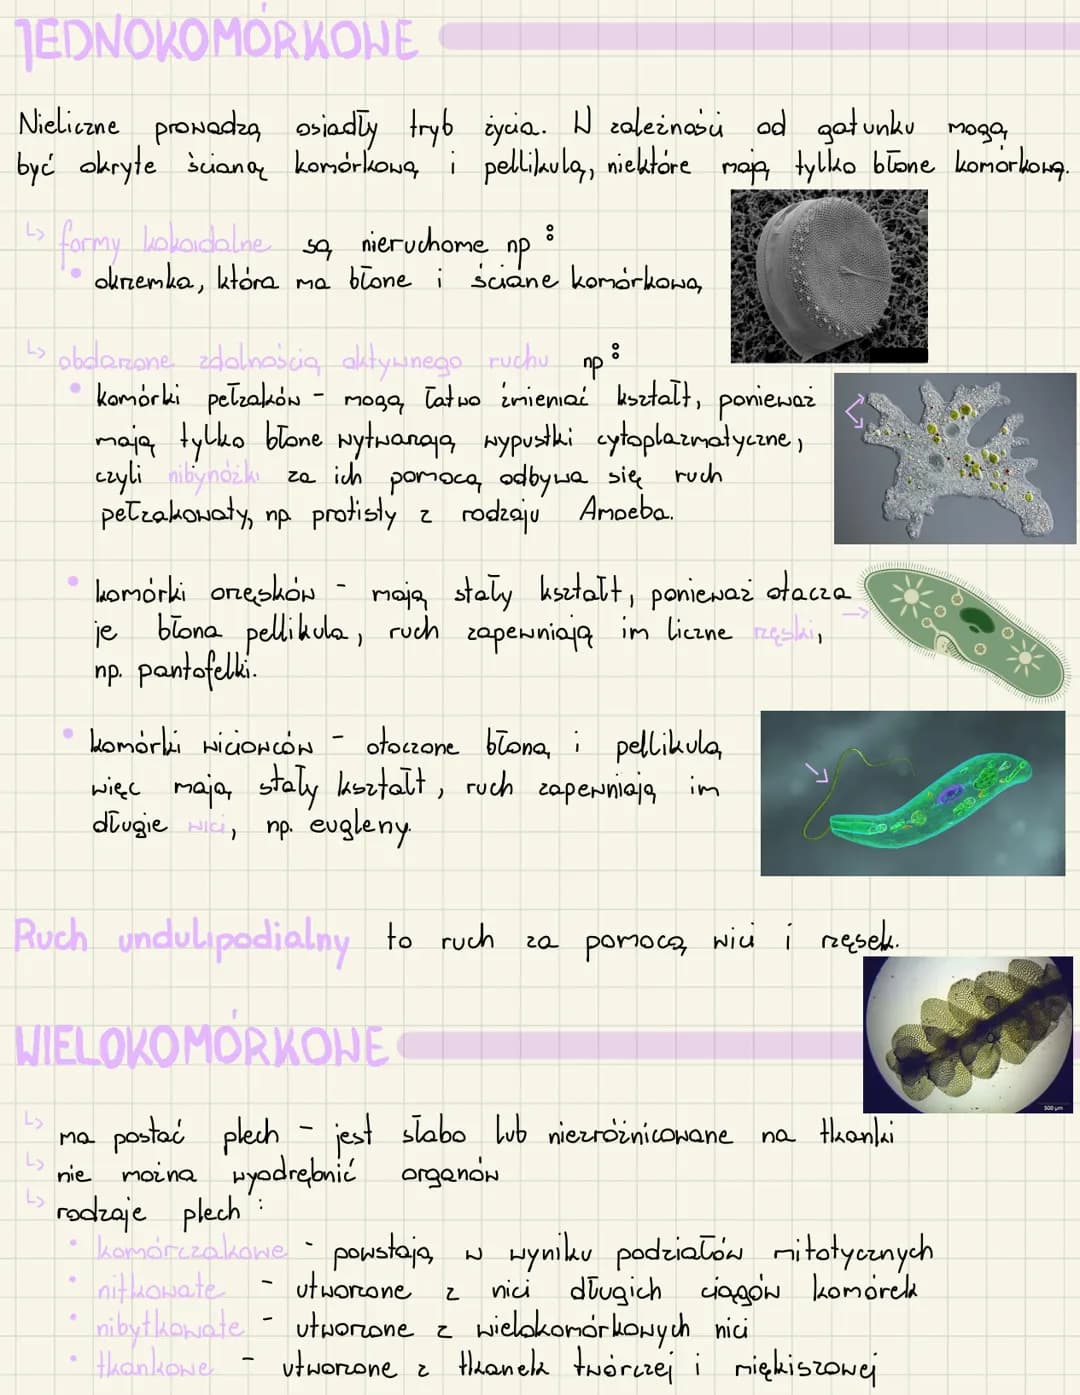 JEDNOKOMÓRKOWE
Nieliczne prowadzą osiadły tryb życia. W zależności od gatunku mogą
być okryte ścianą komórkową i pellikulą, niektóre mają tylko błone komórkową.
↳ formy kokoidalne są nieruchome np:
• okrzemka, która ma błone i ściane komórkową
↳ obdarzone zdolnością aktywnego ruchu np:
• komórki pełzaków - mogą łatwo zmieniać kształt, ponieważ
mają tylko błone wytwarzają wypustki cytoplazmatyczne,
czyli nibynóżki za ich pomocą odbywa się ruch
pełzakowaty, np. protisty z rodzaju Amoeba.
• komórki orzęsków - mają stały kształt, ponieważ otacza
je błona pellikula, ruch zapewniają im liczne rzęski,
np. pantofelki.
• komórki wiciowców - otoczone błoną i pellikulą
więc mają stały kształt, ruch zapewniają im
długie wici, np. eugleny.
Ruch undulipodialny to ruch za pomocą wici i rzęsek.
WIELOKOMÓRKOWE
500 µm
↳ ma postać plech - jest słabo lub niezróżnicowane na tkanki
↳ nie można wyodrębnić organów
↳ rodzaje plech:
• komórczakowe - powstają w wyniku podziałów mitotycznych
• nitkowate - utworzone z nici długich ciągów komórek
• nibytkowate - utworzone z wielokomórkowych nici
• tkankowe - utworzone z tkanek twórczej i miękiszowej